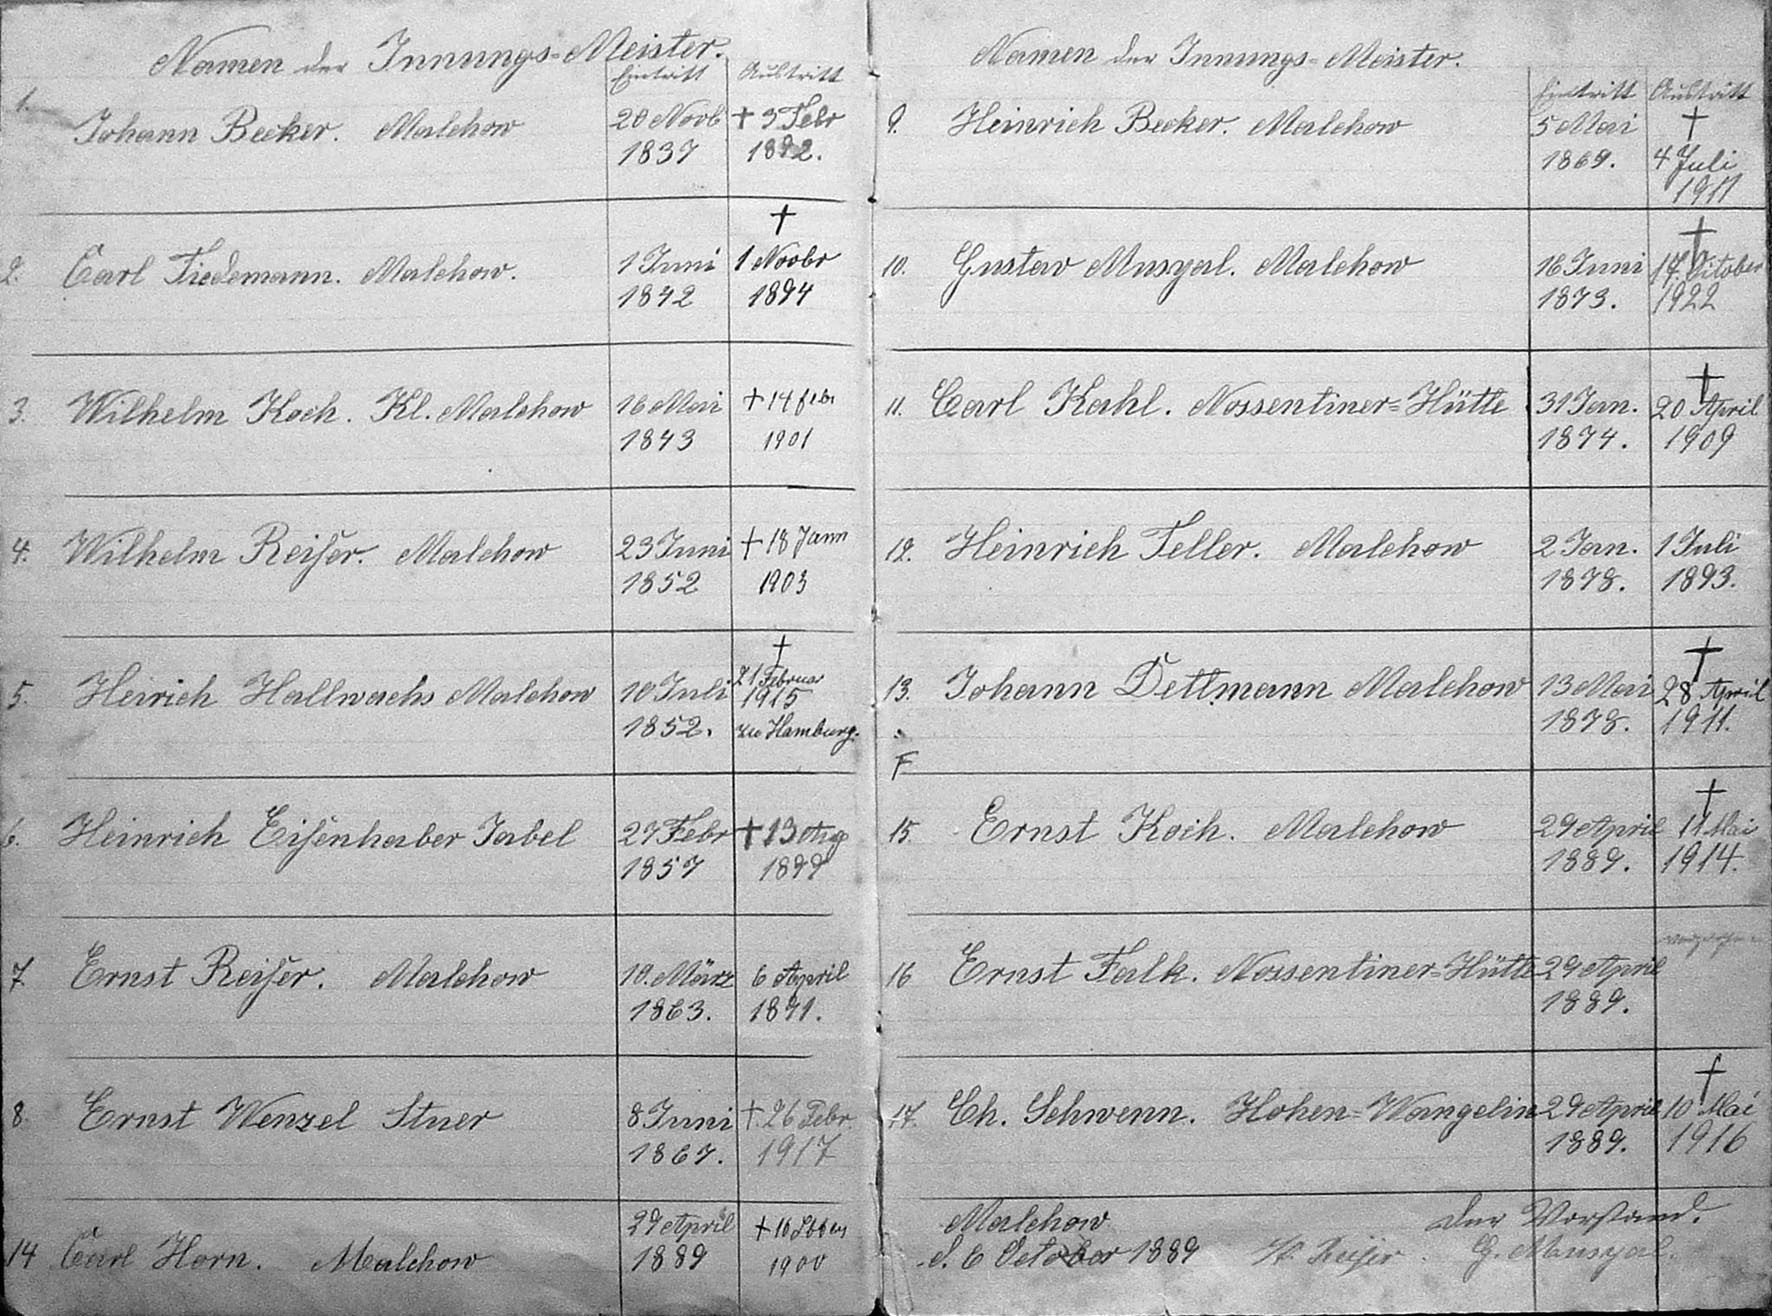 Namen der Innungs=Meister.
Eintritt Austritt
1.
Johann Becker. Malchow 20 Novb † 3 Febr
1837 1892.
†
2. Carl Tiedemann. Malchow. 1 Juni 1 Novbr
1842 1894
3. Wilhelm Koch. Kl. Malchow 16 Mai † 14 febr
1843 1901
4. Wilhelm Reiser. Malchow 23 Juni † 18 Jann
1852 1903
†
21 Februar
5. Heirich Hallwachs Malchow 10 Juli 1915
1852. zu Hamburg.
6. Heinrich Eisenhaber Jabel 27 Febr † 13 Aug
1857 1899
7 Ernst Reiser. Malchow 19. März 6 April
1863. 1891.
8. Ernst Wenzel Stuer 8 Juni † 26 Febr.
1867. 1917
29 April † 16
14 Carl Horn. Malchow 1889 1900
Namen der Innungs=Meister.
Eintritt Austritt
9. Heinrich Becker. Malchow 5 Mai †
1869. 4 Juli
1911
†
10. Gustav Musyal. Malchow 16 Juni 17. October
1873. 1922
†
11. Carl Kahl. Nossentiner=Hütte 31 Jan. 20 April
1874. 1909
12. Heinrich Feller. Malchow 2 Jan. 1 Juli
1878. 1893.
†
13. Johann Dettmann Malchow 13 Mai 28 April
1878. 1911.
F
†
15. Ernst Koch. Malchow 29 April 11 Mai
1889. 1914.
16 Ernst Falk. Nossentiner=Hütte 29 April
1889.
†
17. Ch. Schwenn. Hohen=Wangelin 29 April 10 Mai
1889. 1916
Malchow Der Vorstand.
d. 6 October 1889 W. Reiser. G. Musyal.